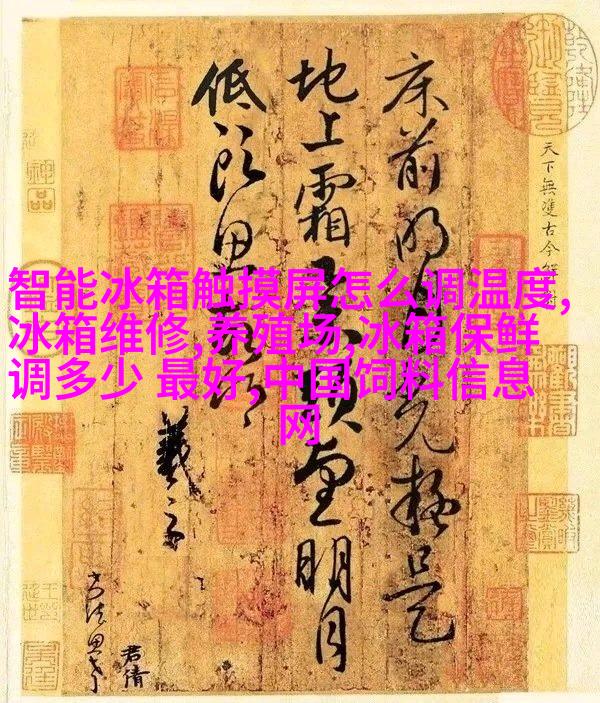 智能冰箱触摸屏怎么调温度,
冰箱维修,养殖场,冰箱保鲜
调多少 最好,中国饲料信息
网
天下無雙古今鮮對
床前明月光疑是
地上霜舉頭望明月
低頭思故鄉
羲之
神品
君倩